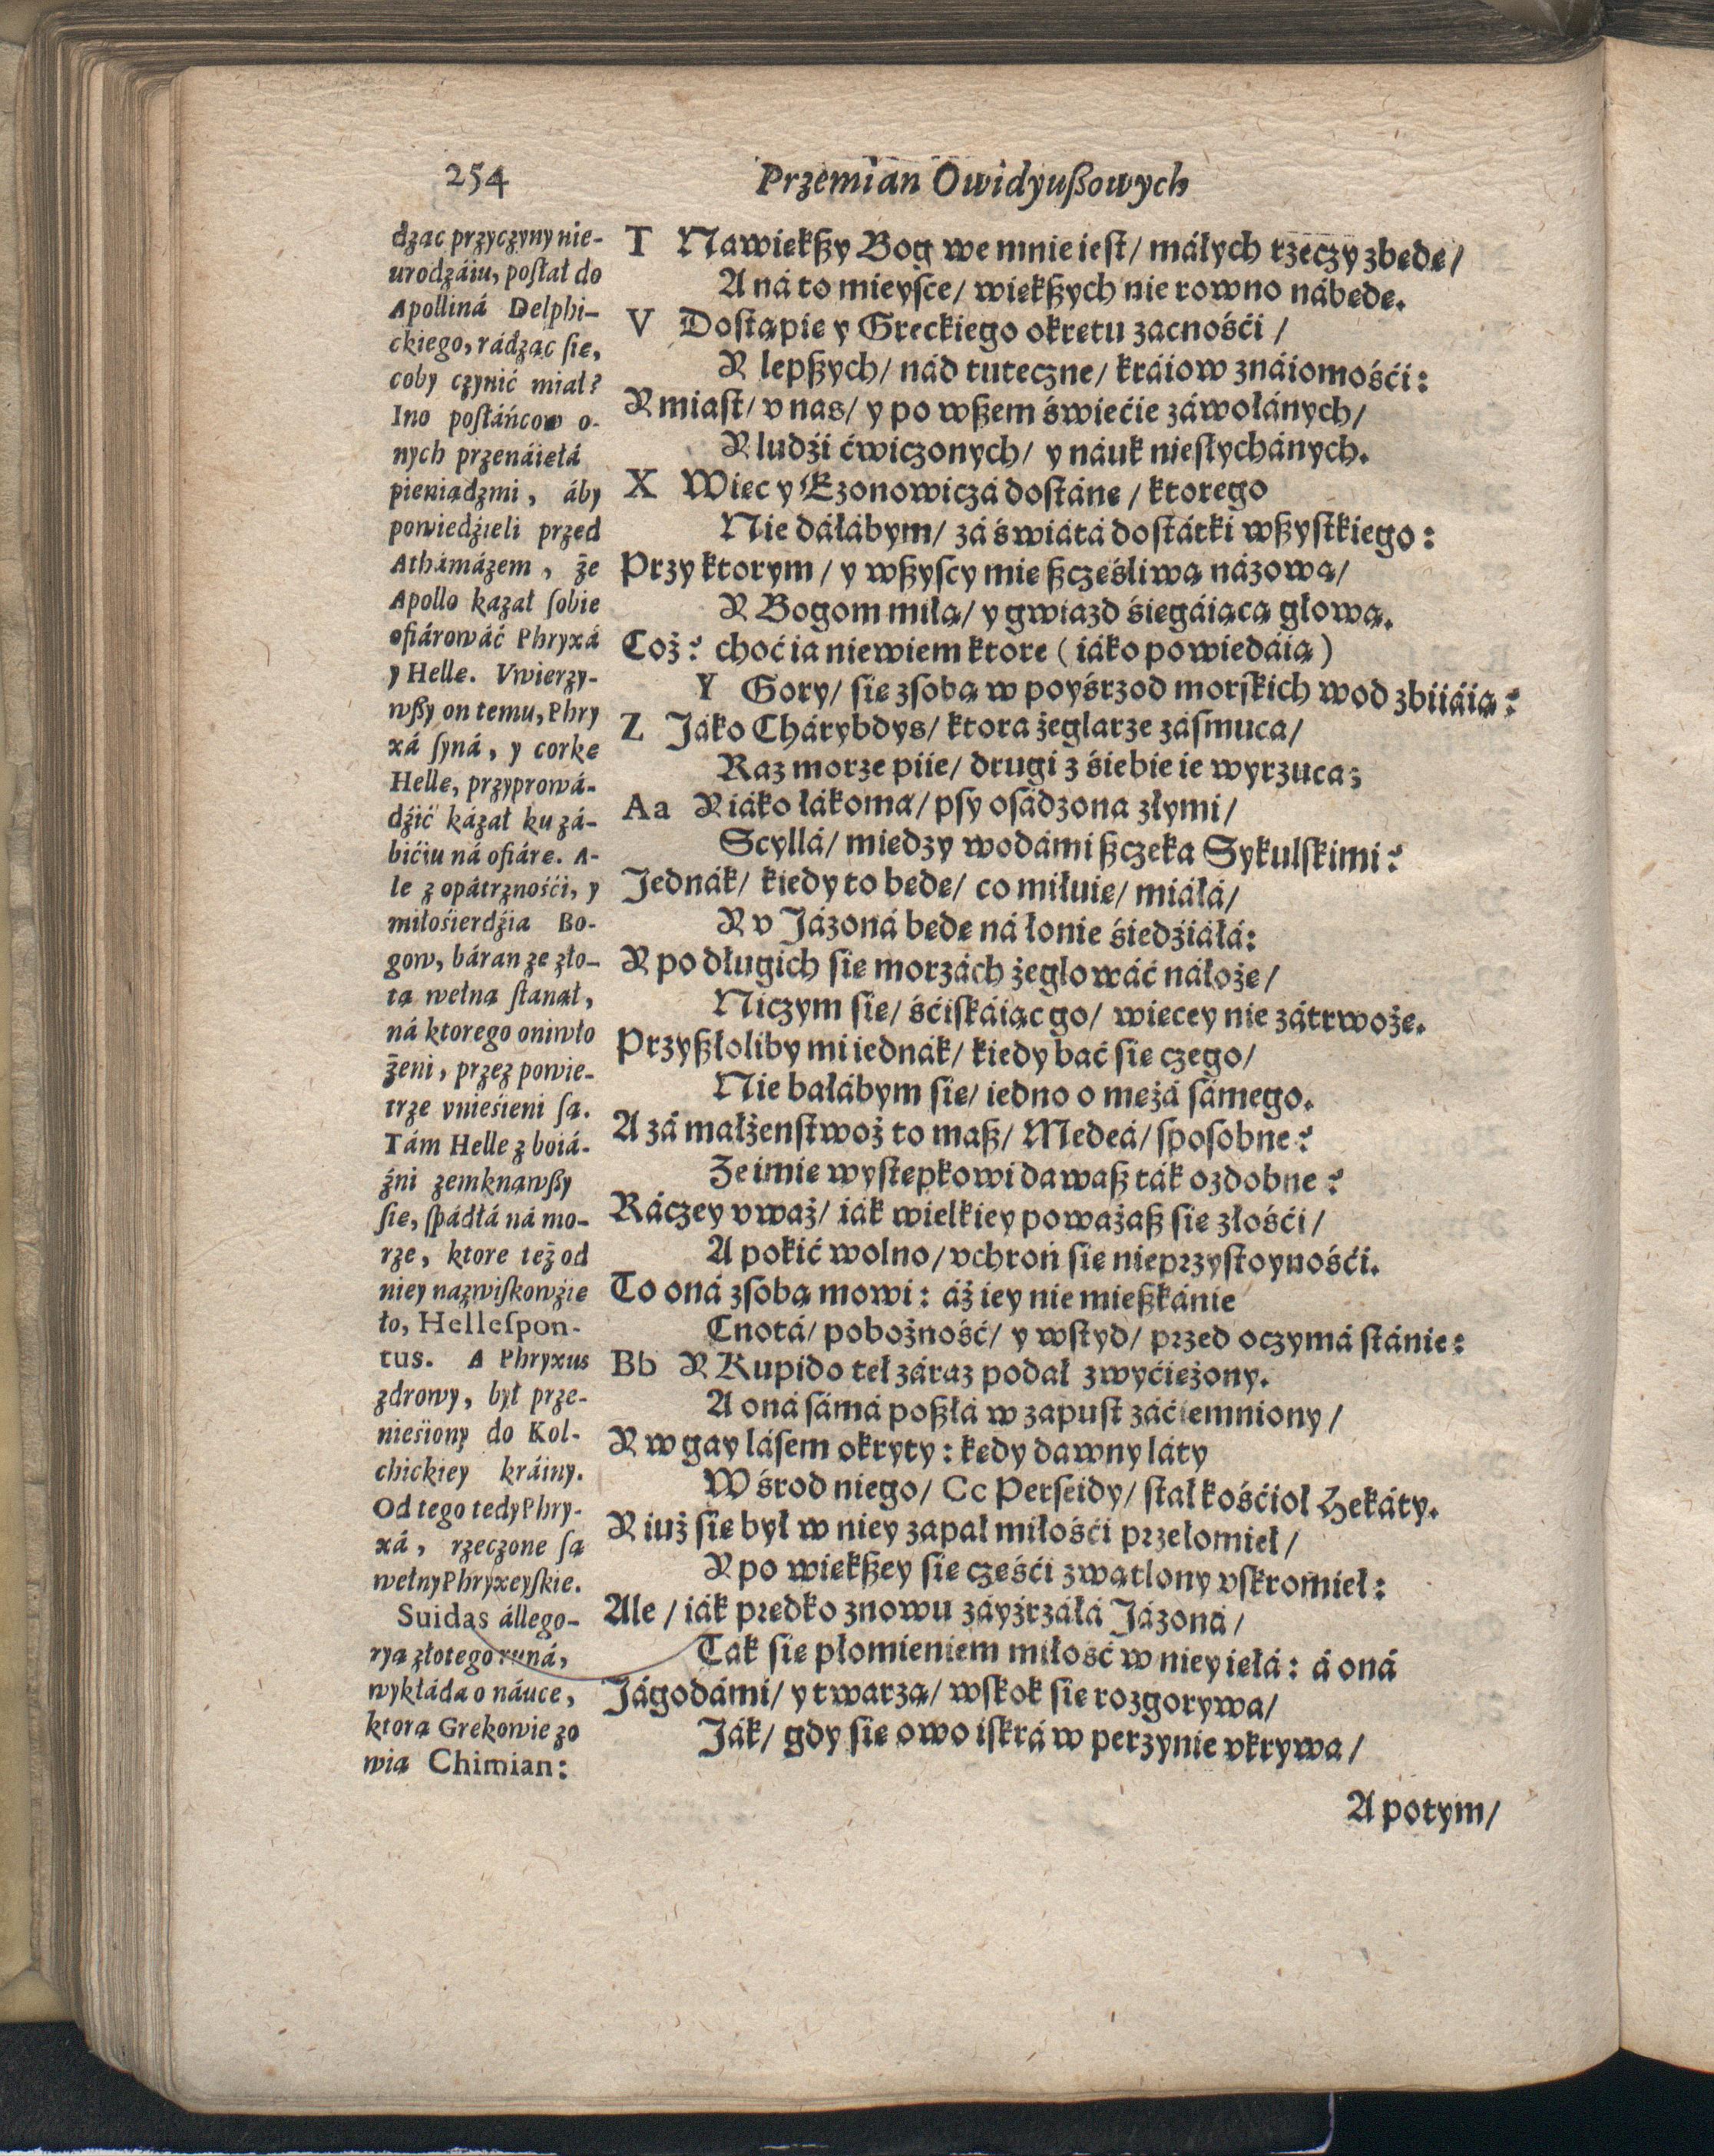 254
Przemian Owidyußowych
dząc przyczyny nie-
urodzáiu, posłał do
Apolliná Delphi-
ckiego, rádząc sie,
coby czynić miał?
Ino posłáńcow o-
nych przenáięłá
pieniądzmi, áby
powiedźieli przed
Athámázem, że
Apollo kazał sobie
ofiárowáć Phryxá
y Helle. Vwierzy-
wßy on temu, Phry
xá syná, y corkę
Helle, przyprowá-
dźić kázał ku zá-
bićiu ná ofiárę. A-
le z opátrznośći, y
miłośierdźia Bo-
gow, báran ze zło-
tą wełną stánął,
ná ktorego oni wło
żeni, przez powie-
trze vnieśieni są.
Tám Helle z boiá-
źni zemknąwßy
sie, spádłá ná mo-
rze, ktore też od
niey nazwisko wzię
ło, Hellespon-
tus. A Phryxus
zdrowy, był prze-
nieśiony do Kol-
chickiey kráiny.
Od tego tedy Phry-
xá, rzeczone są
wełny Phryxeyskie.
Suidas állego-
ryą złotego runá,
wykłáda o náuce,
ktorą Grekowie zo
wią Chimian:
T Nawiekßy Bog we mnie iest/ máłych rzeczy zbędę/
A ná to mieysce/ większych nie rowno nábędę.
V Dostąpię y Greckiego okrętu zacnośći /
Y lepßych/ nád tuteczne/ kráiow znáiomośći:
Y miast/ v nas/ y po wßem świećie záwołánych/
Y ludźi ćwiczonych/ y náuk niesłychánych.
X Więc y Ezonowiczá dostánę / ktorego
Nie dáłábym/ zá świátá dostátki wßystkiego:
Przy ktorym / y wßyscy mię ßczęśliwą názową/
Y Bogom miłą/ y gwiazd śięgáiącą głową.
Coż? choć ia nie wiem ktore ( iáko powiedáią )
Y Gory/ sie z sobą w poyśrzod morskich wod zbiiáią?
Z Jáko Chárybdys/ ktora żeglarze zásmuca/
Raz morze piie/ drugi z śiebie ie wyrzuca;
Aa Y iáko łákoma/ psy osádzona złymi/
Scyllá/ miedzy wodámi ßczeka Sykulskimi?
Jednák/ kiedy to będę/ co miłuię/ miáłá/
Y v Jázoná będę ná łonie śiedźiáłá:
Y po długich sie morzách żeglowáć náłożę/
Niczym sie/ śćiskáiąc go/ więcey nie zátrwożę.
Przyßłoliby mi iednák/ kiedy bać sie czego/
Nie bałábym sie/ iedno o mężá sámego.
A zá małżeństwoż to maß/ Medeá/ sposobne?
Że imię występkowi dawaß ták ozdobne?
Ráczey vważ/ iák wielkiey poważaß sie złośći/
A pokić wolno/ vchroń sie nieprzystoynośći.
To oná z sobą mowi: áż iey nie mießkánie
Cnotá/ pobożność/ y wstyd/ przed oczymá stánie:
Bb Y Kupido teł záraz podał zwyćiężony.
A oná sámá poßłá w zapust záćiemniony /
Y w gay lásem okryty: kędy dawny láty
W środ niego/ Cc Perseidy/ stał kośćioł Hekáty.
Y iuż sie był w niey zapał miłośći przełomieł/
Y po więkßey sie częśći zwątlony vskromieł:
Ale / iák prędko znowu záyźrzáłá Jázoná/
Ták sie płomieniem miłość w niey ięłá: á oná
Jágodámi/ y twarzą/ wskok sie rozgorywa/
Ják/ gdy sie owo iskrá w perzynie vkrywa/
A potym/